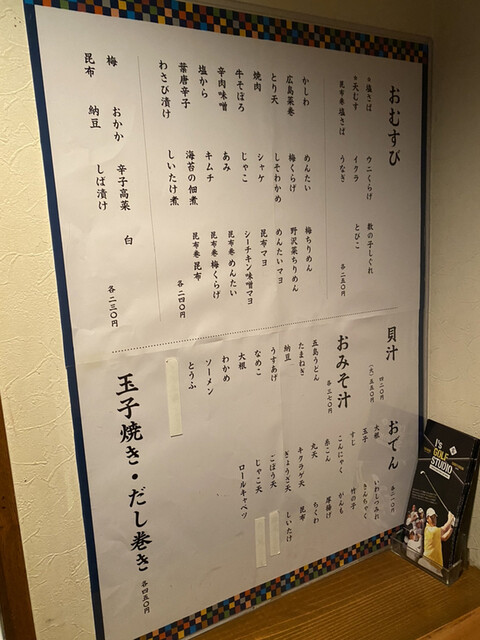 おむすび
塩さば ウニくらげ 数の子しぐれ
天むす イクラ とびこ
昆布巻塩さば うなぎ 各二五〇円
かしわ めんたい 梅ちりめん
広島菜巻 梅くらげ 野沢菜ちりめん
とり天 しそわかめ めんたいマヨ
焼肉 シャケ 昆布マヨ
牛そぼろ じゃこ シーチキン味噌マヨ
辛肉味噌 あみ 昆布巻めんたい
塩から キムチ 昆布巻梅くらげ
葉唐辛子 海苔の佃煮 昆布巻昆布
わさび漬け しいたけ煮 各二四〇円
梅 おかか 辛子高菜 白
昆布 納豆 しば漬け 各二三〇円
貝汁 四二〇円
(大)五五〇円
おみそ汁 各三七〇円
五島うどん
たまねぎ
納豆
うすあげ
なめこ
大根
わかめ
ソーメン
とうふ
おでん
大根 いわしつみれ
玉子 きんちゃく
すじ 竹の子
こんにゃく がんも
糸こん 厚揚げ
丸天 ちくわ
キクラゲ天 昆布
ぎょうざ天 しいたけ
ごぼう天
じゃこ天
ロールキャベツ
玉子焼き・だし巻き 各四五〇円
I's
GOLF
STUDIO